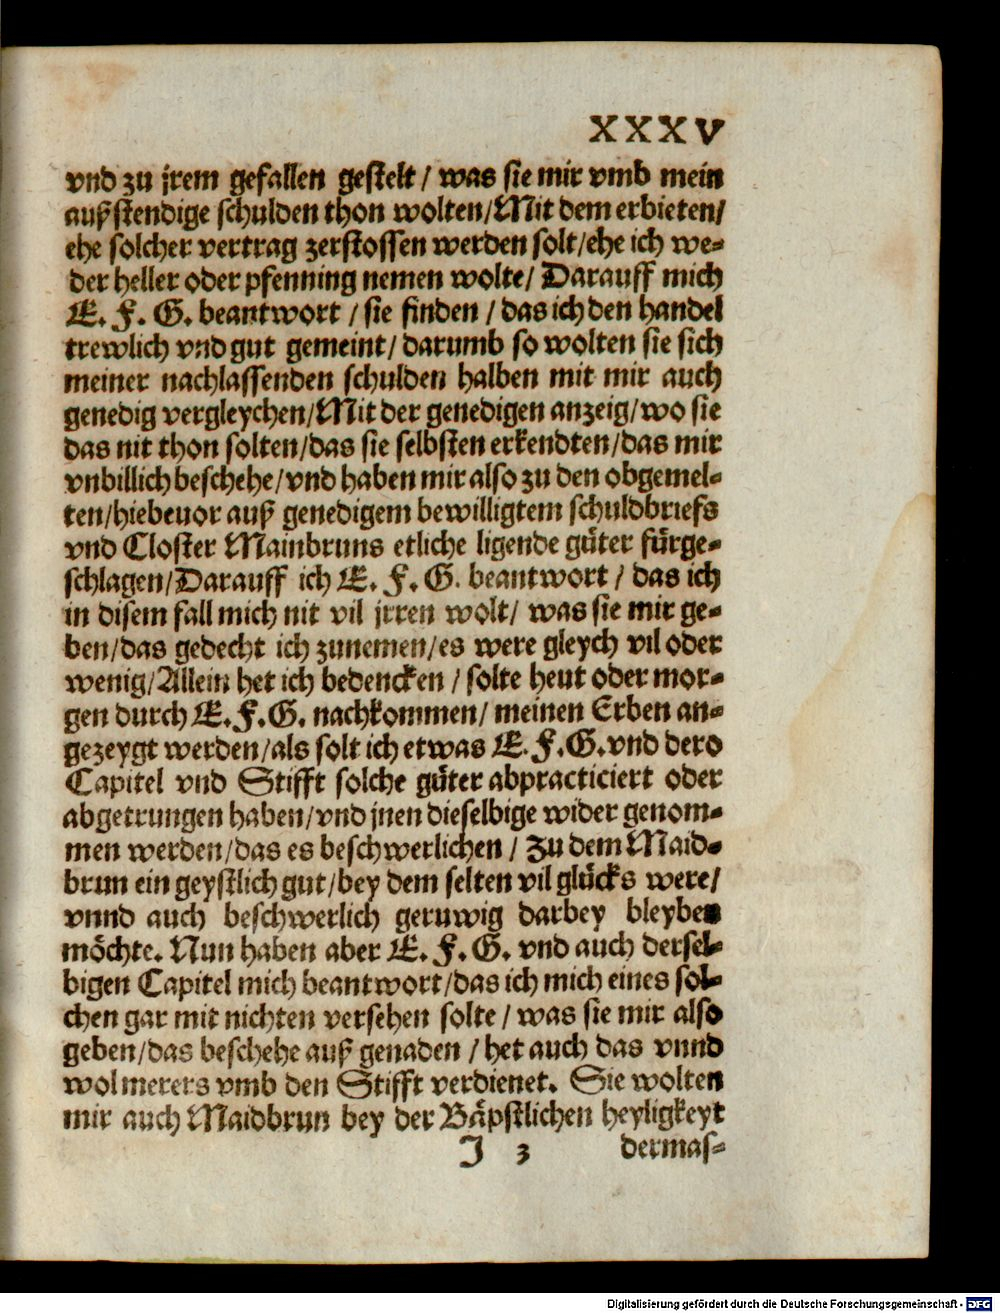 XXXV
vnd zu jrem gefallen gestelt / was sie mir vmb mein
außstendige schulden thon wolten/Mit dem erbieten/
ehe solcher vertrag zerstossen werden solt/ehe ich we-
der heller oder pfenning nemen wolte/ Darauff mich
E. F. G. beantwort / sie finden / das ich den handel
trewlich vnd gut gemeint/ darumb so wolten sie sich
meiner nachlassenden schulden halben mit mir auch
genedig vergleychen/Mit der genedigen anzeig/wo sie
das nit thon solten/das sie selbsten erkendten/das mir
vnbillich beschehe/vnd haben mir also zu den obgemel-
ten/hiebeuor auß genedigem bewilligtem schuldbriefs
vnd Closter Mainbruns etliche ligende güter fürge-
schlagen/Darauff ich E. F. G. beantwort / das ich
in disem fall mich nit vil jrren wolt/ was sie mir ge-
ben/das gedecht ich zunemen/es were gleych vil oder
wenig/Allein het ich bedencken / solte heut oder mor-
gen durch E. F. G. nachkommen/ meinen Erben an-
gezeygt werden/als solt ich etwas E. F. G. vnd dero
Capitel vnd Stifft solche güter abpracticiert oder
abgetrungen haben/vnd jnen dieselbige wider genom-
men werden/das es beschwerlichen / Zu dem Maid-
brun ein geystlich gut/bey dem selten vil glücks were/
vnnd auch beschwerlich geruwig darbey bleyben
möchte. Nun haben aber E. F. G. vnd auch dersel-
bigen Capitel mich beantwort/das ich mich eines sol-
chen gar mit nichten versehen solte / was sie mir also
geben/das beschehe auß genaden / het auch das vnnd
wol merers vmb den Stifft verdienet. Sie wolten
mir auch Maidbrun bey der Bäpstlichen heyligkeyt
J 3 dermas-
Digitalisierung gefördert durch die Deutsche Forschungsgemeinschaft - DFG